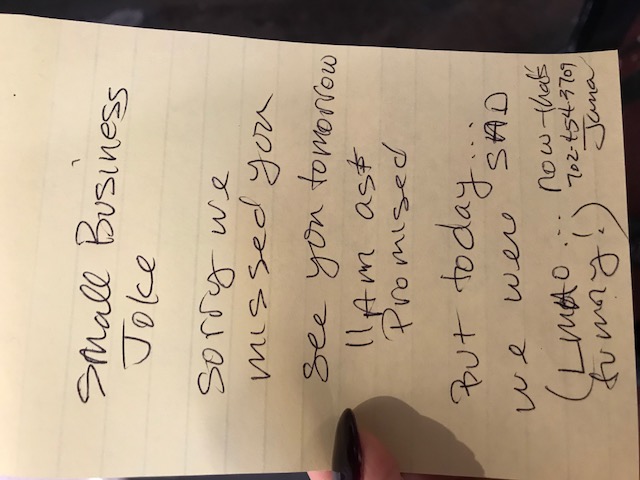 Small Business
Joke
Sorry we
missed you
See you tomorrow
11Am ast
Promised
But today...
we were SAD
(LMAO... now that's
funny!)
702-454-3709
Jana